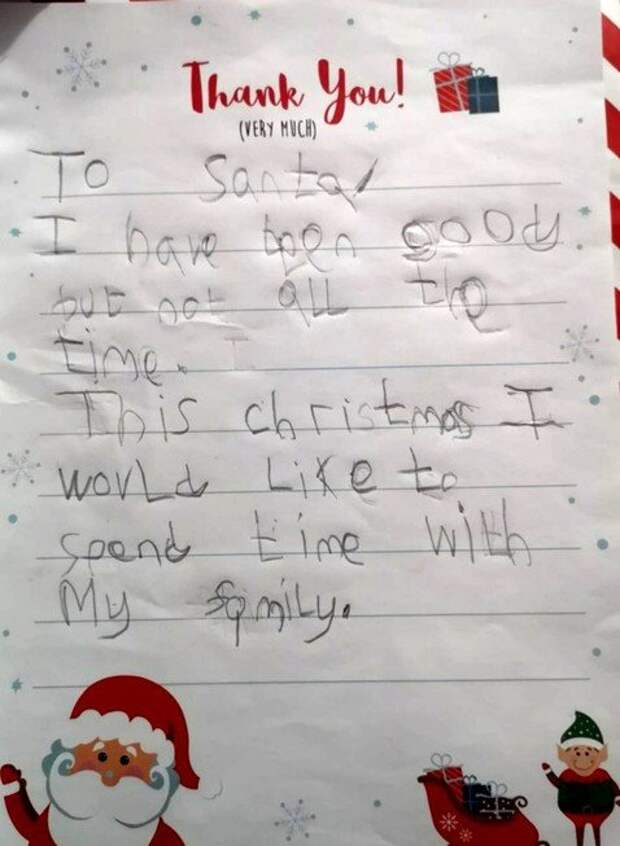 Thank You!
(VERY MUCH)
To Santa,
I have been good
but not all the
time.
This christmas I
would Like to
spend time with
My family.